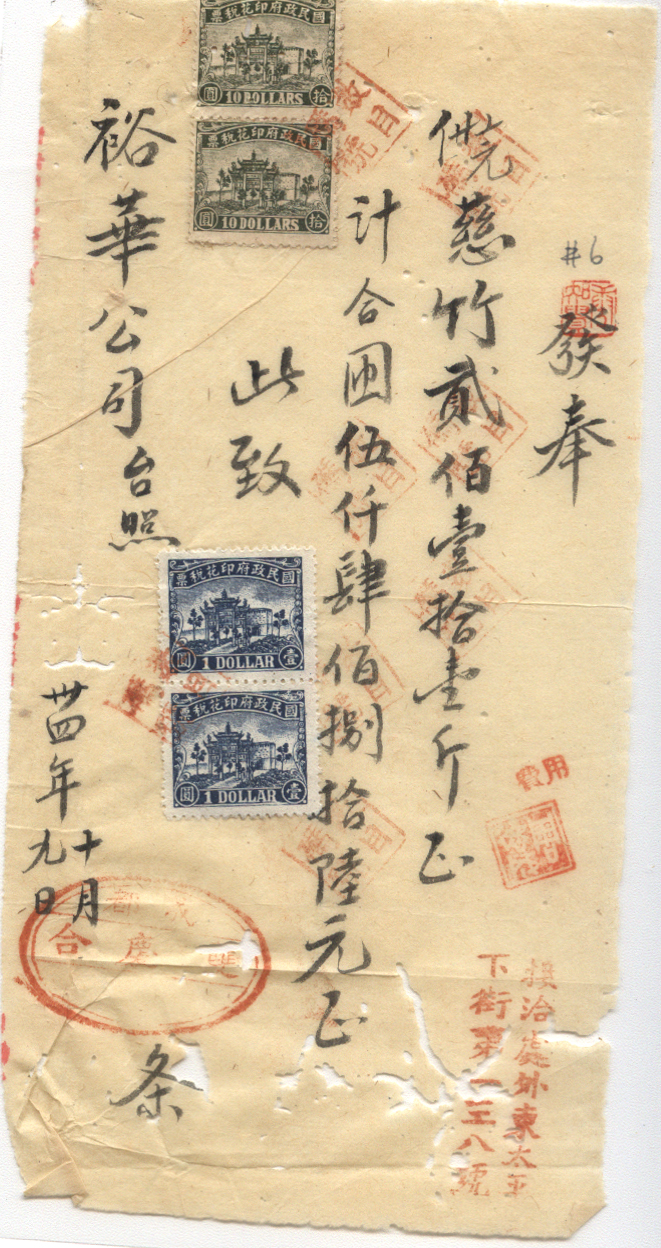 #6
發奉
慈竹貳佰壹拾壹斤正
計合国伍仟肆佰捌拾陸元正
此致
裕華公司台照
卅四年十月九日
条
國民政府印花稅票
拾圓
10 DOLLARS
國民政府印花稅票
拾圓
10 DOLLARS
國民政府印花稅票
壹圓
1 DOLLAR
國民政府印花稅票
壹圓
1 DOLLAR
成都
雙慶合
費用
接洽處外東太平
下街第一三八號